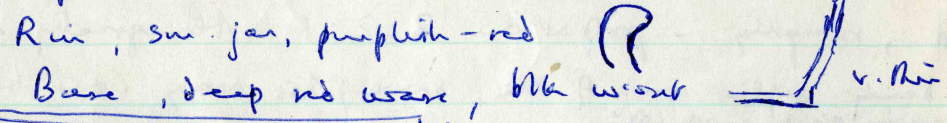 Rim, sm. jar, purplish-red
Base, deep red ware, blk w'out v. thin